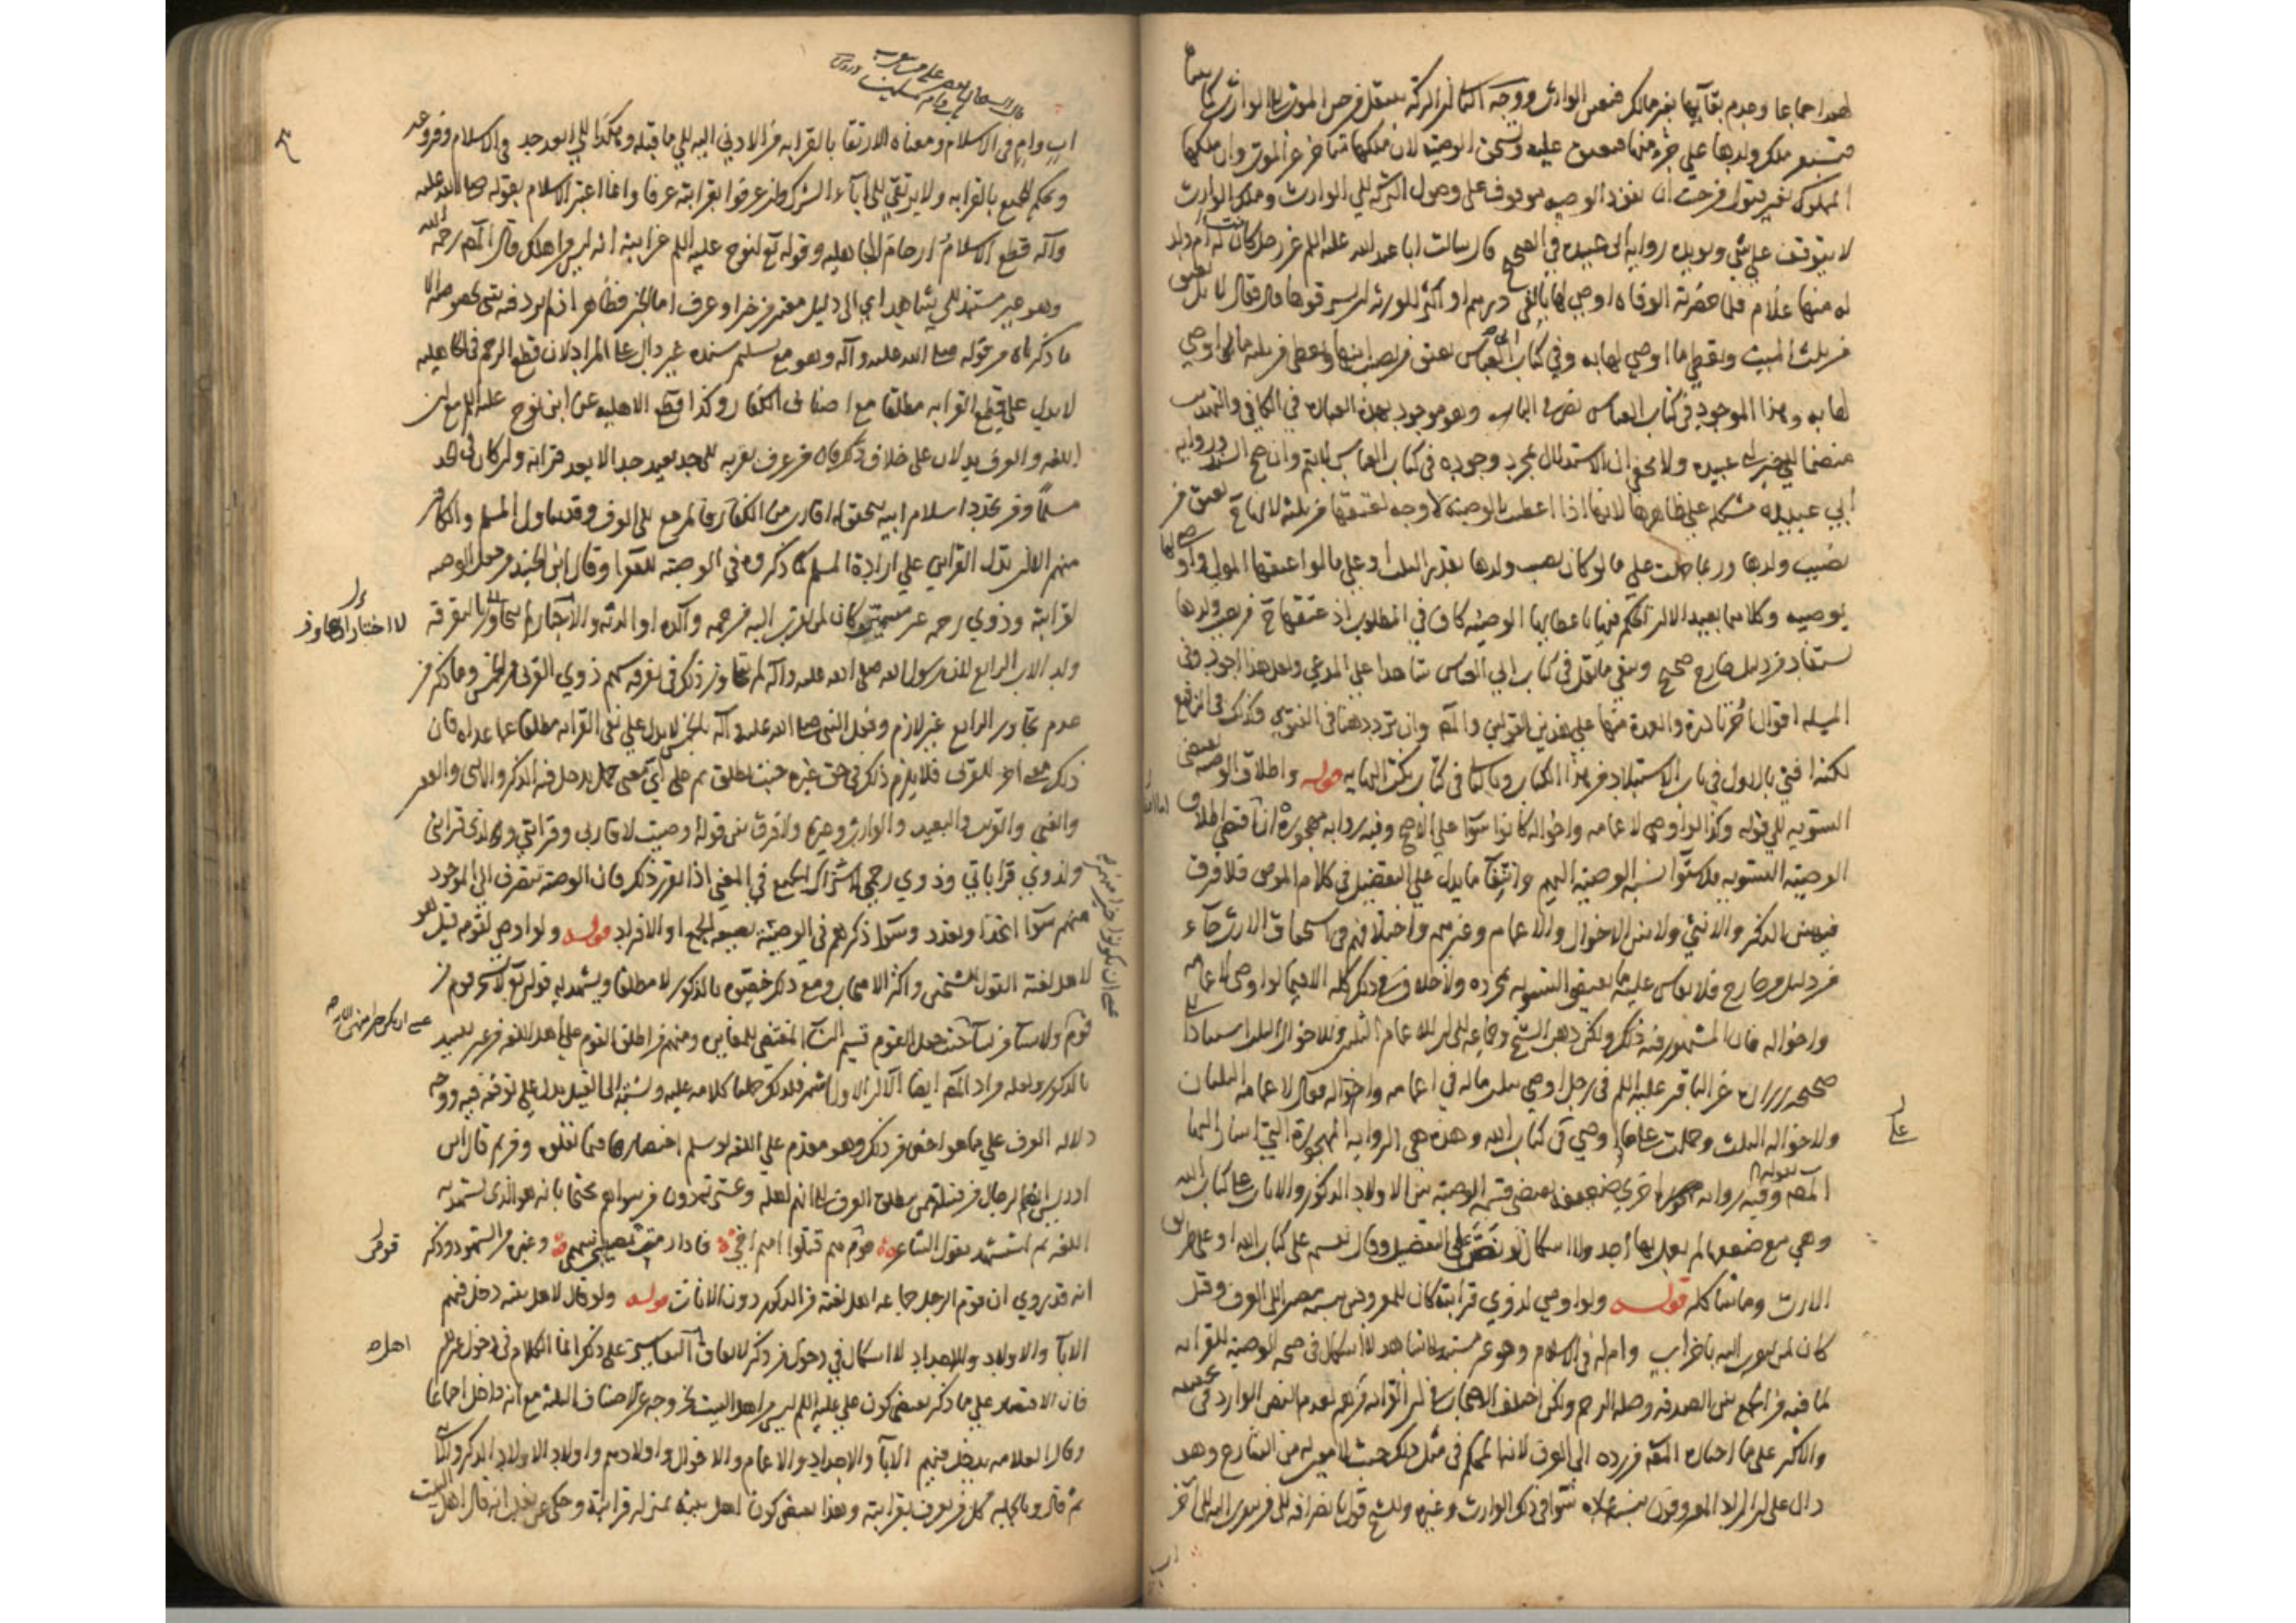 لهذا اجماعا وعدم بقائها بغير مالك فتعين الوارث ووجه الثالث ان التركة تنتقل من حين الموت الى الوارث كما
فتستقر ملك ولدها على جزء منها فتعتق عليه وتستحق الوصية لان ملكها متأخر عن الموت وان ملكها
المملوك بغير قبول من حيث ان نفوذ الوصيه موقوف على وصول التركة الى الوارث وملك الوارث
لا يتوقف على شي ويؤيده رواية ابى عبيده في الصحيح قال سالت ابا عبد الله عليه السلم عن رجل كانت له ام ولد
له منها غلام فلما حضرته الوفاة اوصى لها بالفى درهم او اكثر للورثة ان يسترقوها قال فقال لا بل تعتق
من ثلث الميت وتعطى ما اوصى لها به وفي كتاب العباس تعتق من نصيب ابنها وتعطى من ثلثه ما اوصى
لها به وهذا الموجود في كتاب العباس نص في الباب وهو موجود بهذه العبارة في الكافي والتهذيب
منضما الى خبر ابى عبيده ولا يخفى ان الاستدلال بمجرد وجوده في كتاب العباس لا يتم وان صح السند ورواية
ابي عبيدة مشكله على ظاهرها لانها اذا اعطيت الوصية لا وجه لعتقها من ثلثه لانها ح تعتق من
نصيب ولدها وربما حملت على ما لو كان نصيب ولدها بقدر الثلث او على ما لو اعتقها المولى واوصى لها
بوصيه وكلاهما بعيد الا ان الحكم فيها باعطائها الوصيه كاف في المطلوب اذ عتقها ح من نصيب ولدها
يستفاد من دليل خارج صحيح ويبقى ما نقل في كتاب ابي العباس شاهدا على المدعى ولعل هذا اجود وفي
المسئله اقوال اخر نادرة والعمدة منها على هذين القولين والمصـ وان تردد هنا في الفتوى وكذلك في النافع
لكنه افتى بالاول في باب الاستيلاد من هذا الكتاب وبالثانى في كتاب نكت النهايه قوله واطلاق الوصيه يقتضى
التسويه الى قوله وكذا لو اوصى لاعمامه واخواله كانوا سواء على الاصح وفيه رواية مهجورة انما اقتضى اطلاق
الوصية التسويه لاستواء نسبة الوصية اليهم وانتفاء ما يدل على التفضيل في كلام الموصى فلا فرق
فيه بين الذكر والانثى ولا بين الاخوال والاعمام وغيرهم واختلافهم في استحقاق الارث جاء
من دليل من خارج فلا يقاس عليه ما يقتضى التسويه بمجرده ولا خلاف في ذلك كله الا فيما لو اوصى لاعمامه
واخواله فان المشهور فيه ذلك ولكن ذهب الشيخ وجماعه الى ان للاعمام الثلثين وللاخوال الثلث استنادا الى
صحيحه زرارة عن الباقر عليه السلم في رجل اوصى بثلث ماله في اعمامه واخواله فقال لاعمامه الثلثان
ولاخواله الثلث وحملت على ما لو اوصى على كتاب الله وهذه هي الرواية المهجورة التي اشار اليها
المصـ بقوله وفيه رواية مهجورة اخرى ضعيفه تقتضى قسمة الوصية بين الاولاد الذكور والاناث على كتاب الله
وهي مع ضعفها لم يعمل بها احد ولا اشكال لو نص على التفضيل وقال يقسم على كتاب الله او على طريق
الارث وما شاكله قوله ولو اوصى لذوي قرابته كان للمعروفين بنسبه مصيرا الى العرف وقيل
كان لمن يتقرب اليه باخر اب وام له في الاسلام وهو غير مستند الى شاهد لا اشكال في صحه الوصية للقرابه
لما فيه من الجمع بين الصدقه وصلة الرحم ولكن اختلف الاصحاب في ان القرابه من هم لعدم النص الوارد في تحقيقه
والاكثر على ما اختاره المصـ من رده الى العرف لانه المحكم في مثل ذلك حيث لا معين له من الشارع وهو
دال على ان المراد المعروفون بنسبه عادة سواء في ذلك الوارث وغيره وللشيخ قول بانصرافه الى من يتقرب اليه الى اخر
اب
اب وام في الاسلام ومعناه الارتقاء بالقرابه من الادنى اليه الى ما قبله وهكذا الى ابعد جد في الاسلام وفروعه
ويحكم للجميع بالقرابه ولا يرتقى الى اباء الشرك وان عرفوا بقرابته عرفا وانما اعتبر الاسلام بقوله صلى الله عليه
وآله قطع الاسلام ارحام الجاهليه وقوله تع لنوح عليه السلم عن ابنه انه ليس من اهلك قال المصـ رحمه الله
وهو غير مستند الى شاهد اي الى دليل معتبر من خبر او عرف اما الخبر فظاهر اذ لم يرد فيه شى بخصوصه الا
ما ذكرناه من قوله صلى الله عليه وآله وهو مع تسليم سنده غير دال على المراد لان قطع الرحم في الجاهليه
لا يدل على قطع القرابه مطلقا مع اصناف الكفار وكذا قطع الاهليه عن ابن نوح عليه السلم مع ان
اللغه والعرف يدلان على خلاف ما ذكراه من عرف بقربه الى جد بعيد جدا لا يعد قرابة وان كان الجد
مسلما ومن تجدد اسلام ابيه يتحقق له اقارب من الكفار فالمرجع الى العرف وقد يتناول المسلم والكافر
منهم الا ان تدل القراين على ارادة المسلم كما ذكروه في الوصية للفقراء وقال ابن الجنيد من جعل الوصيه
لقرابته وذوي رحمه غير مسمين كان لمن تقرب اليه من جهه والده او والدته والاختار ان لا يتجاوز بالتفرقة
ولد الاب الرابع لان رسول الله صلى الله عليه وآله لم يتجاوز ذلك في تفرقه سهم ذوي القربى من الخمس وما ذكره من
عدم تجاوز الرابع غير لازم وفعل النبي صلى الله عليه وآله بالخمس لا يدل على نفى القرابه مطلقا عما عداه فان
ذلك معنى اخر للقربى فلا يلزم ذلك في حق غيره حيث يطلق ثم على اي معنى حمل يدخل فيه الذكر والانثى والفقير
والغنى والقريب والبعيد والوارث وغيره ولا فرق بين قوله وصيت لاقاربى وقرابتي ولذى قرابتي
ولذوي قراباتي وذوي رحمى لاشتراك الجميع في المعنى اذا تقرر ذلك فان الوصية تنصرف الى الموجود
منهم سواء اتحد او تعدد وسواء ذكرهم في الوصية بصيغه الجمع او الافراد قوله ولو اوصى لقومه قيل هو
لاهل لغته القول للشيخين واكثر الاصحاب ومع ذلك خصوه بالذكور لا مطلقا ويشهد له قوله تع لا يسخر قوم من
قوم ولا نساء من نساء حيث جعل القوم قسيم النساء المقتضى للمغايرة ومنهم من اطلق القوم على اهل اللغه من غير تقييد
بالذكور ولعله مراد المصـ ايضا الا ان الاول اشهر فلذلك حملنا كلامه عليه ونسبته الى القيل يدل على توقفه فيه ووجهه
دلاله العرف على ما هو اخص من ذلك وهو مقدم على اللغه لو سلم انحصارها فيما نقلوه ومن ثم قال ابن
ادريس انهم الرجال من قبيلته ممن يطلق العرف بانهم اهله وعشيرته دون من سواهم محتجا بانه هو الذى تشهد به
اللغه ثم استشهد بقول الشاعر قومى هم قتلوا اميم اخى فاذا رميت يصيبنى سهمى وغيره من الشهود وذكر
انه قد روي ان قوم الرجل جماعه اهل لغته من الذكور دون الاناث قوله ولو قال لاهل بيته دخل فيهم
الاباء والاولاد والاجداد لا اشكال في دخول من ذكر لاتفاق التفاسير على ذلك انما الكلام في دخول غيرهم
فان الاقتصار على ما ذكر يقتضى كون على عليه السلم ليس من اهل البيت لخروجه عن الاصناف الثلثه مع انه داخل اجماعا
وقال العلامه يدخل فيهم الاباء والاجداد والاعمام والاخوال واولادهم واولاد الاولاد الذكر والانثى
ثم قال وبالجمله كل من يعرف بقرابته وهذا يقتضى كون اهل بيته بمنزله قرابته وحكى عن ثعلب انه قال اهل البيت